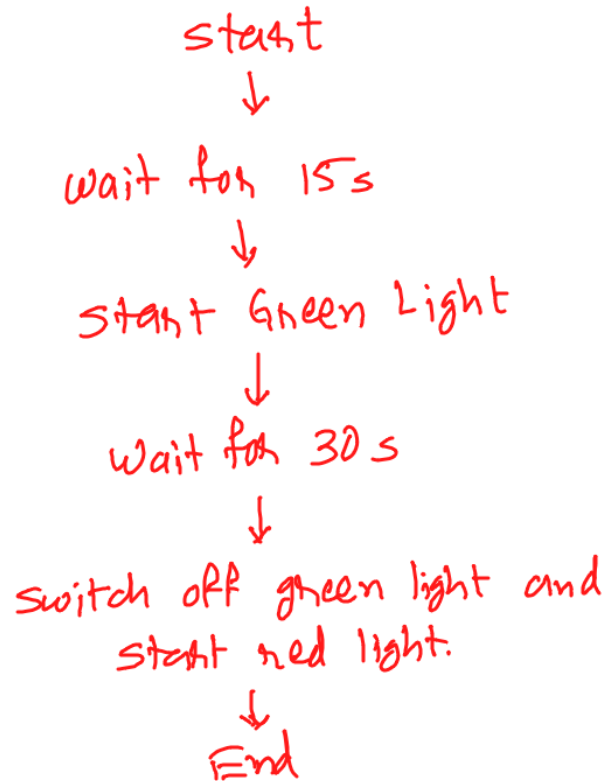 start
↓
wait for 15s
↓
start Green Light
↓
wait for 30s
↓
switch off green light and
start red light.
↓
End